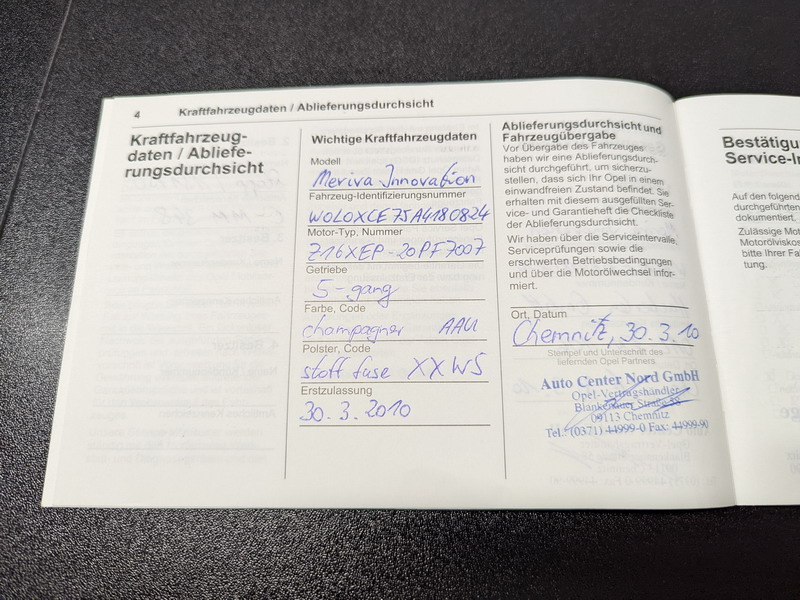 4 Kraftfahrzeugdaten / Ablieferungsdurchsicht
Kraftfahrzeug-
daten / Abliefe-
rungsdurchsicht
Wichtige Kraftfahrzeugdaten
Modell
Meriva Innovation
Fahrzeug-Identifizierungsnummer
W0L0XCE75A4180824
Motor-Typ, Nummer
Z16XEP-20PF7007
Getriebe
5-gang
Farbe, Code
champagner AAU
Polster, Code
stoff fuse XXWS
Erstzulassung
30.3.2010
Ablieferungsdurchsicht und
Fahrzeugübergabe
Vor Übergabe des Fahrzeuges
haben wir eine Ablieferungsdurch-
sicht durchgeführt, um sicherzu-
stellen, dass sich Ihr Opel in einem
einwandfreien Zustand befindet. Sie
erhalten mit diesem ausgefüllten Ser-
vice- und Garantieheft die Checkliste
der Ablieferungsdurchsicht.
Wir haben über die Serviceintervalle,
Serviceprüfungen sowie die
erschwerten Betriebsbedingungen
und über die Motorölwechsel infor-
miert.
Ort, Datum
Chemnitz, 30.3.10
Stempel und Unterschrift des
liefernden Opel Partners
Auto Center Nord GmbH
Opel-Vertragshändler
Blankenauer Straße
09113 Chemnitz
Tel.: (0371) 44999-0 Fax: 44999-90
Bestätigu
Service-In
Auf den folgend
durchgeführten
dokumentiert.
Zulässige Mot
Motorölviskos
bitte Ihrer Fa
tung.